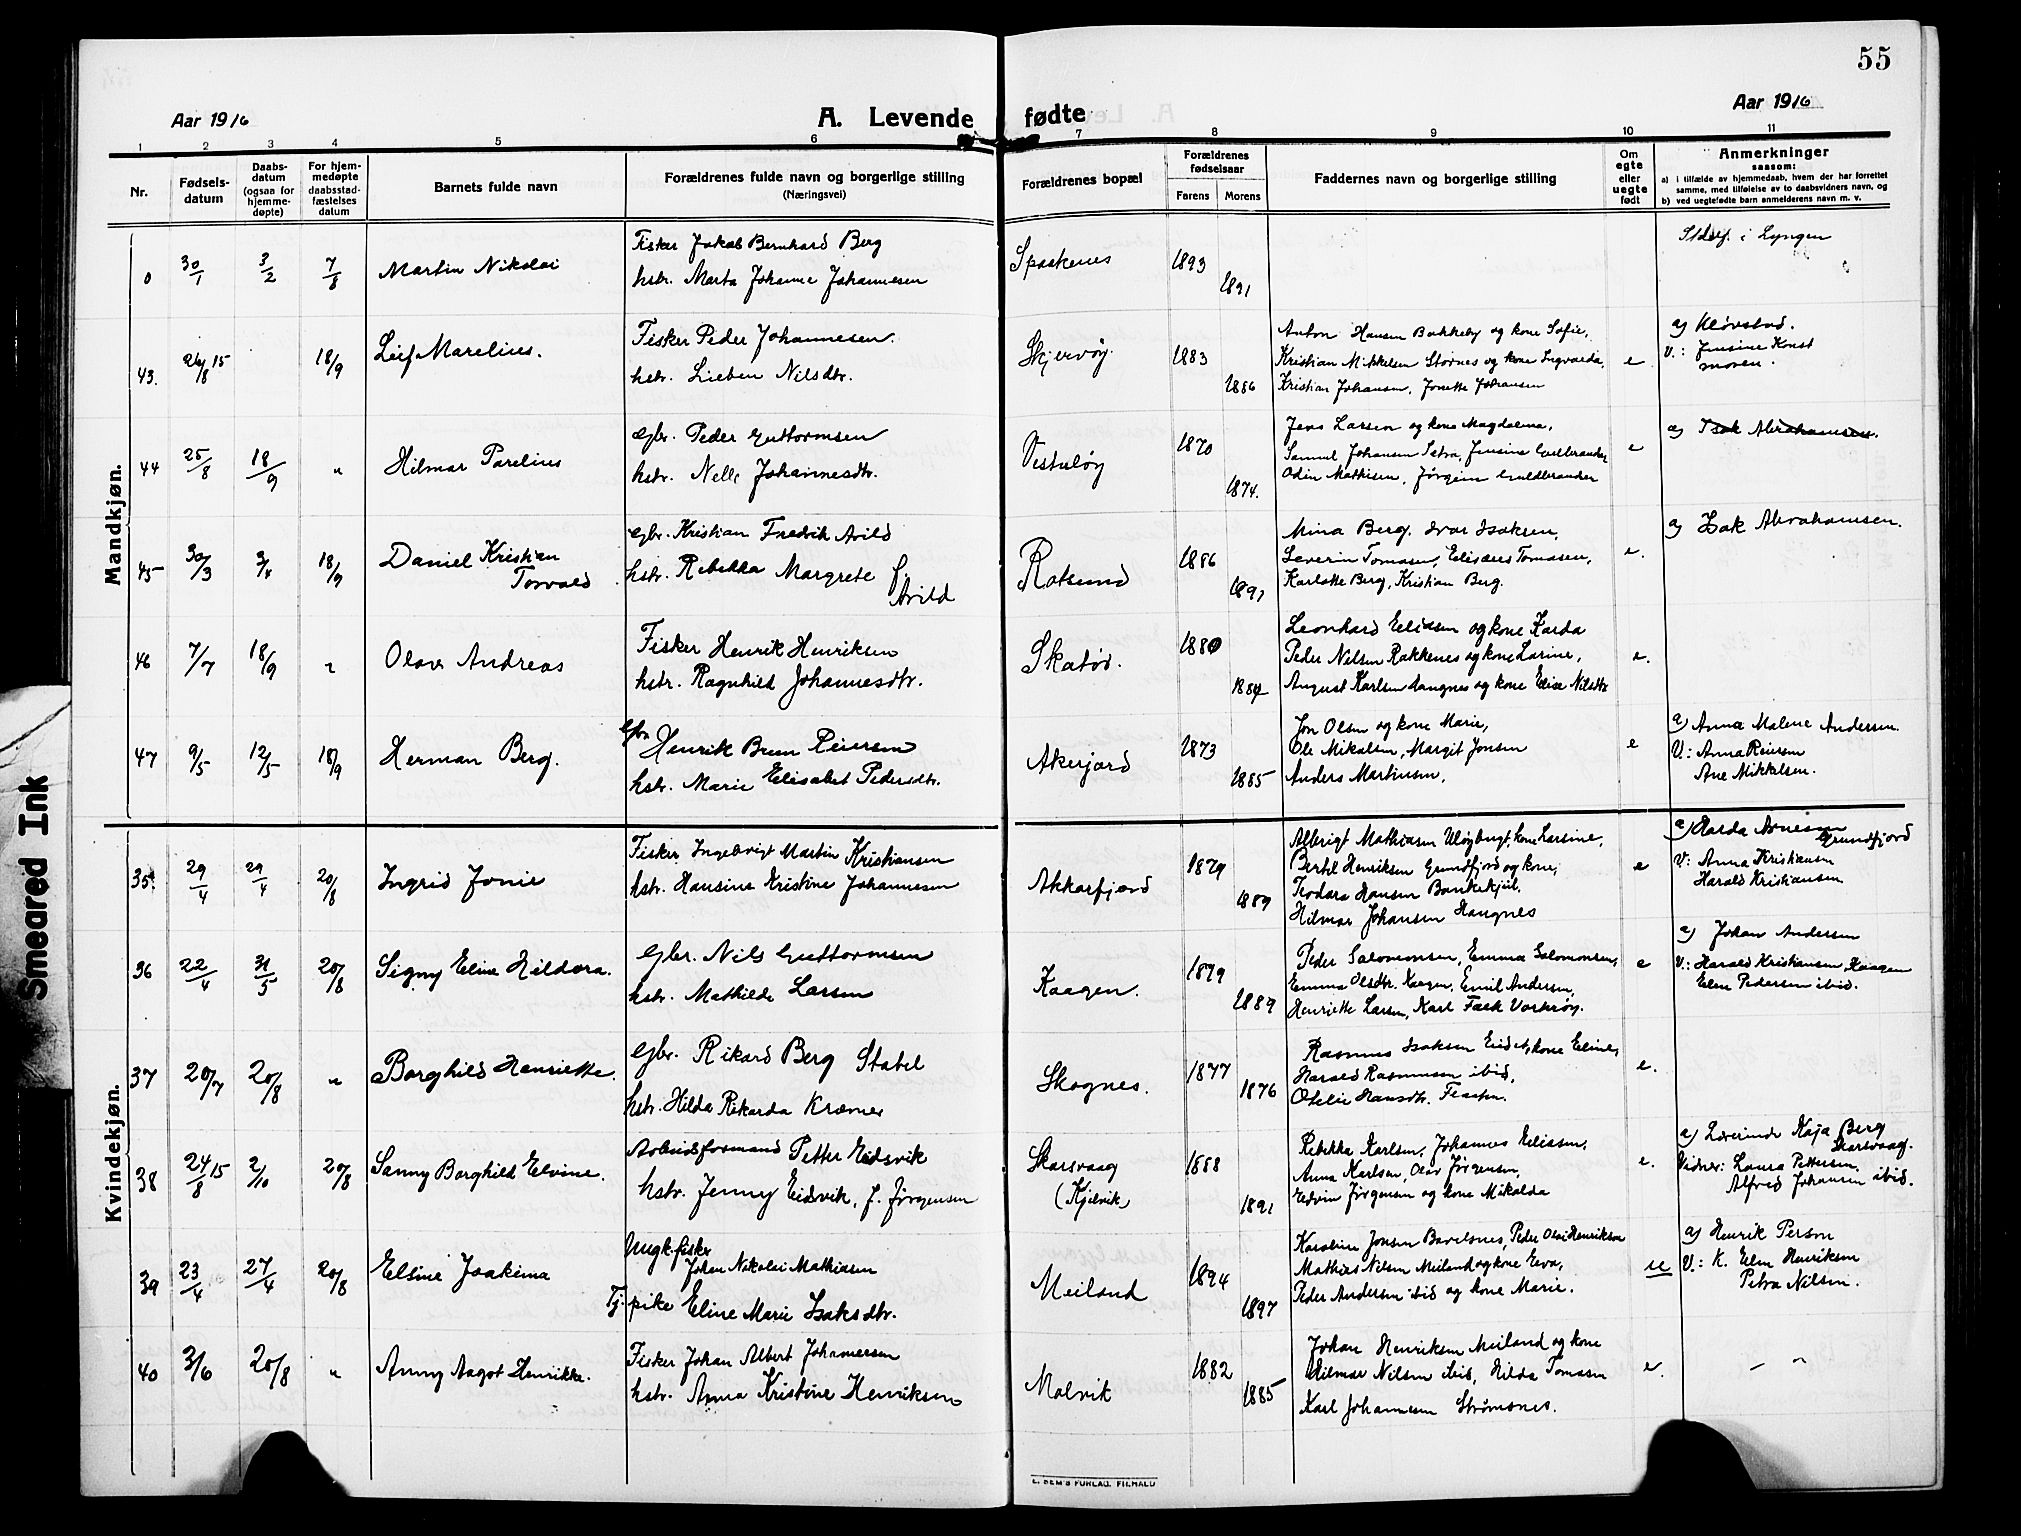 55
Aar 1916
A. Levende fødte
Aar 1916
1 2 3 4 5 6 7 8 9 10 11
Nr.
Fødsels-
datum
Daabs-
datum
(ogsaa for
hjemme-
døpte)
For hjem-
medøpte
daabsstad-
fæstelses
datum
Barnets fulde navn
Forældrenes fulde navn og borgerlige stilling
(Næringsvei)
Forældrenes bopæl
Forældrenes
fødselsaar
Farens Morens
Faddernes navn og borgerlige stilling
Om
egte
eller
uegte
født
Anmerkninger
saasom:
a) i tilfælde av hjemmedaab, hvem der har forrettet
samme, med tilføielse av to daabsvidners navn, og
b) ved uegtefødte barn anmelderens navn m. v.
Mandkjøn.
0 30/1 3/2 7/8 Martin Nikolai
Fisker Jakob Bernhard Berg
hstr. Marta Johanne Johannesen
Spaakenes 1893 1891
i Lyngen
43. 26/8 15 18/9 Leif Marelius.
Fisker Peder Johannesen.
hstr. Lieben Nilsdtr.
Skjervøy 1883 1886
Anton Hansen Bakkeby og kone Sofie,
Kristian Mikkelsen Stornes og kone Ingvarda,
Kristian Johansen, Jonette Johansen
e
a) Kløvstad.
V.: Jensine Konst
moren.
44 25/8 18/9 " Hilmar Parelius
Gbr. Peder Guttormsen
hstr. Nelle Johannesdtr.
Vesterløy 1870 1874.
Jens Larsen og kone Magdalena,
Samuel Johansen Setra, Jensine Guldbrandsen
Odin Mathisen, Jørgine Guldbrandsen
e
a) Isak Abrahamsen.
45 30/3 3/4 18/9 Daniel Kristian
Torvald
Gbr. Kristian Fredrik Arild
hstr. Rebekka Margrete f.
Arild
Rotsund 1886 1891
Mina Berg. Ivar Isaksen,
Severin Tomasen, Elisæus Tomasen,
Karlotte Berg, Kristian Berg.
e.
a) Isak Abrahamsen.
46 7/7 18/9 " Olav Andreas
Fisker Henrik Henriksen
hstr. Ragnhild Johannesdtr.
Skatør. 1880 1884
Leonhard Eliasen og kone Harda
Peder Nilsen Rakkenes og kone Larine,
August Karlsen Haugnes og kone Elise Nilsdtr
e.
47 9/5 12/5 18/9 Herman Berg.
Gbr
Henrik Brun Reiersen
hstr. Marie Elisabet Pedersdtr.
Akerjord 1873 1885
Jon Olsen og kone Marie,
Ole Mikalsen, Margit Jonsen
Anders Martinsen,
e
a) Anna Malene Andersen.
V.: Anna Reiersen
Ane Mikkelsen.
Kvindekjøn.
35. 29/4 29/4 20/8 Ingrid Jonie
Fisker Ingebrigt Martin Kristiansen
hstr. Hansine Kristine Johannesen
Akkarfjord 1879 1889
Albrigt Mathisen Uløybugt, kone Larsine,
Bertel Henriksen Grundfjord og kone,
Teodara Hansen Bankekjeil,
Hilmar Johansen Haugnes
e
a) Harda Arnesen
Grundfjord
V: Anna Kristiansen
Harald Kristiansen
36 22/4 31/5 20/8 Signy Eline Hildora.
Gbr. Nils Guttormsen
hstr. Mathilde Larsen
Kaagen. 1879 1889
Peder Salomonsen, Emma Salomonsen,
Emma Olsdtr. Kaagen, Emil Andersen,
Henriette Larsen, Karl Falk Vorterøy.
e
a) Johan Andersen
V.: Harald Kristiansen, Kaagen
Elen Pedersen ibid.
37 20/7 20/8 " Borghild Henriette.
Gbr. Rikard Berg Stabel
hstr. Hilda Rikarda Kræmer
Skognes. 1877 1876
Rasmus Isaksen Eidet, kone Eline,
Harald Rasmussen ibid,
Otelie Hansdtr.
e.
38 24/8 15 2/10 20/8 Sanny Borghild Elvine.
Arbeidsformand Petter Eidsvik
hstr. Jenny Eidvik, f. Jørgensen
Skarsvaag
(Kjelvik) 1888 1891
Rebekka Karlsen, Johannes Eliassen,
Anna Karlsen, Olav Jørgensen,
Edvin Jørgensen og kone Mikalda
e.
a) Lærerinde Kaja Berg
Skarsvaag.
Vidner: Laura Pettersen,
Alfred Johansen ibid.
39 23/4 27/4 20/8 Elline Joakima
Ungk. fisker
Johan Nikolai Mathiasen
Tj. pike Eline Marie Isaksdtr.
Meiland 1894 1897
Karoline Jonsen Bavelsnes, Peder Olai Henriksen
Mathies Nilsen Meiland og kone Eva,
Peder Andersen ibid og kone Marie.
u
a) Henrik Persen
V.: K. Elen Henriksen
Petra Nilsen.
40 3/6 20/8 " Anny Aagot Henrikke.
Fisker Johan Albert Johannesen
hstr. Anna Kristine Henriksen
Molvik 1882 1885
Johan Henriksen Meiland og kone
Hilmar Nilsen ibid, Hilda Tomasen
Karl Johannesen Strømsnes.
e.
– "
E. SEM'S FORLAG, FR.HALD
Smeared Ink